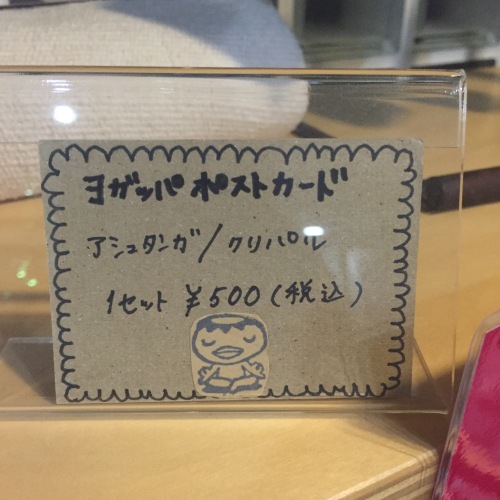 ヨガッパ ポストカード
アシュタンガ/クリパル
1セット ¥500(税込)